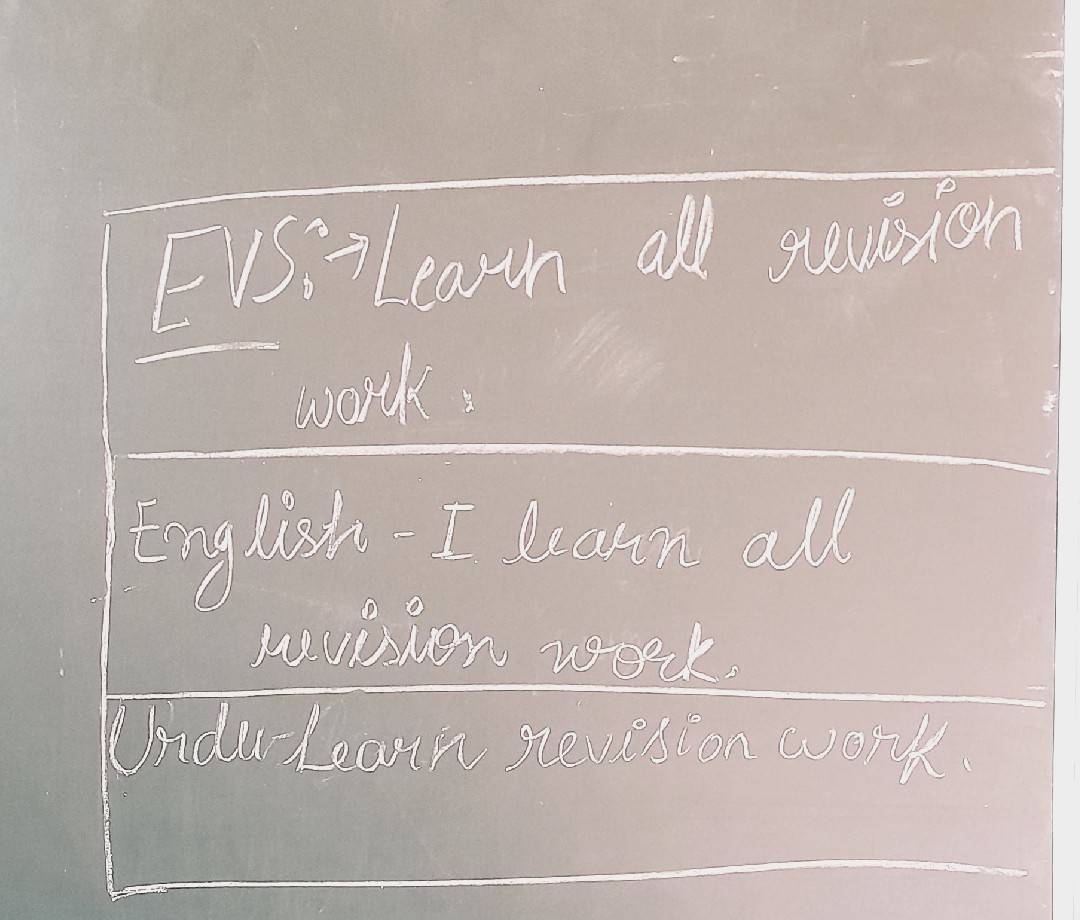 EVS:→ Learn all revision
work.
English - I learn all
revision work.
Urdu - Learn revision work.